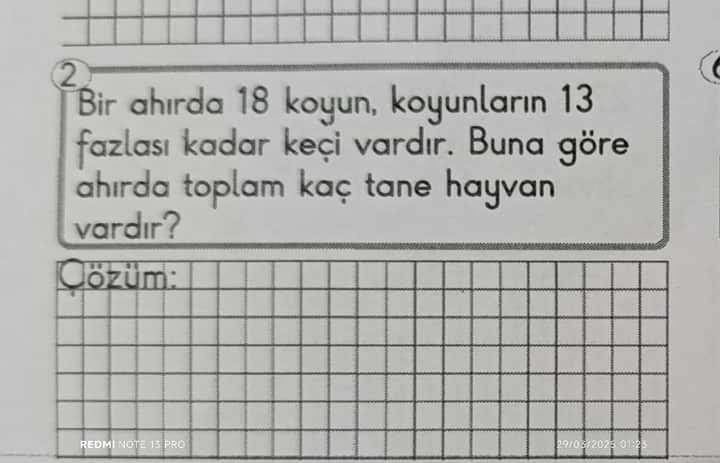 2
Bir ahırda 18 koyun, koyunların 13
fazlası kadar keçi vardır. Buna göre
ahırda toplam kaç tane hayvan
vardır?
Çözüm:
REDMI NOTE 13 PRO
29/03/2025 01:23